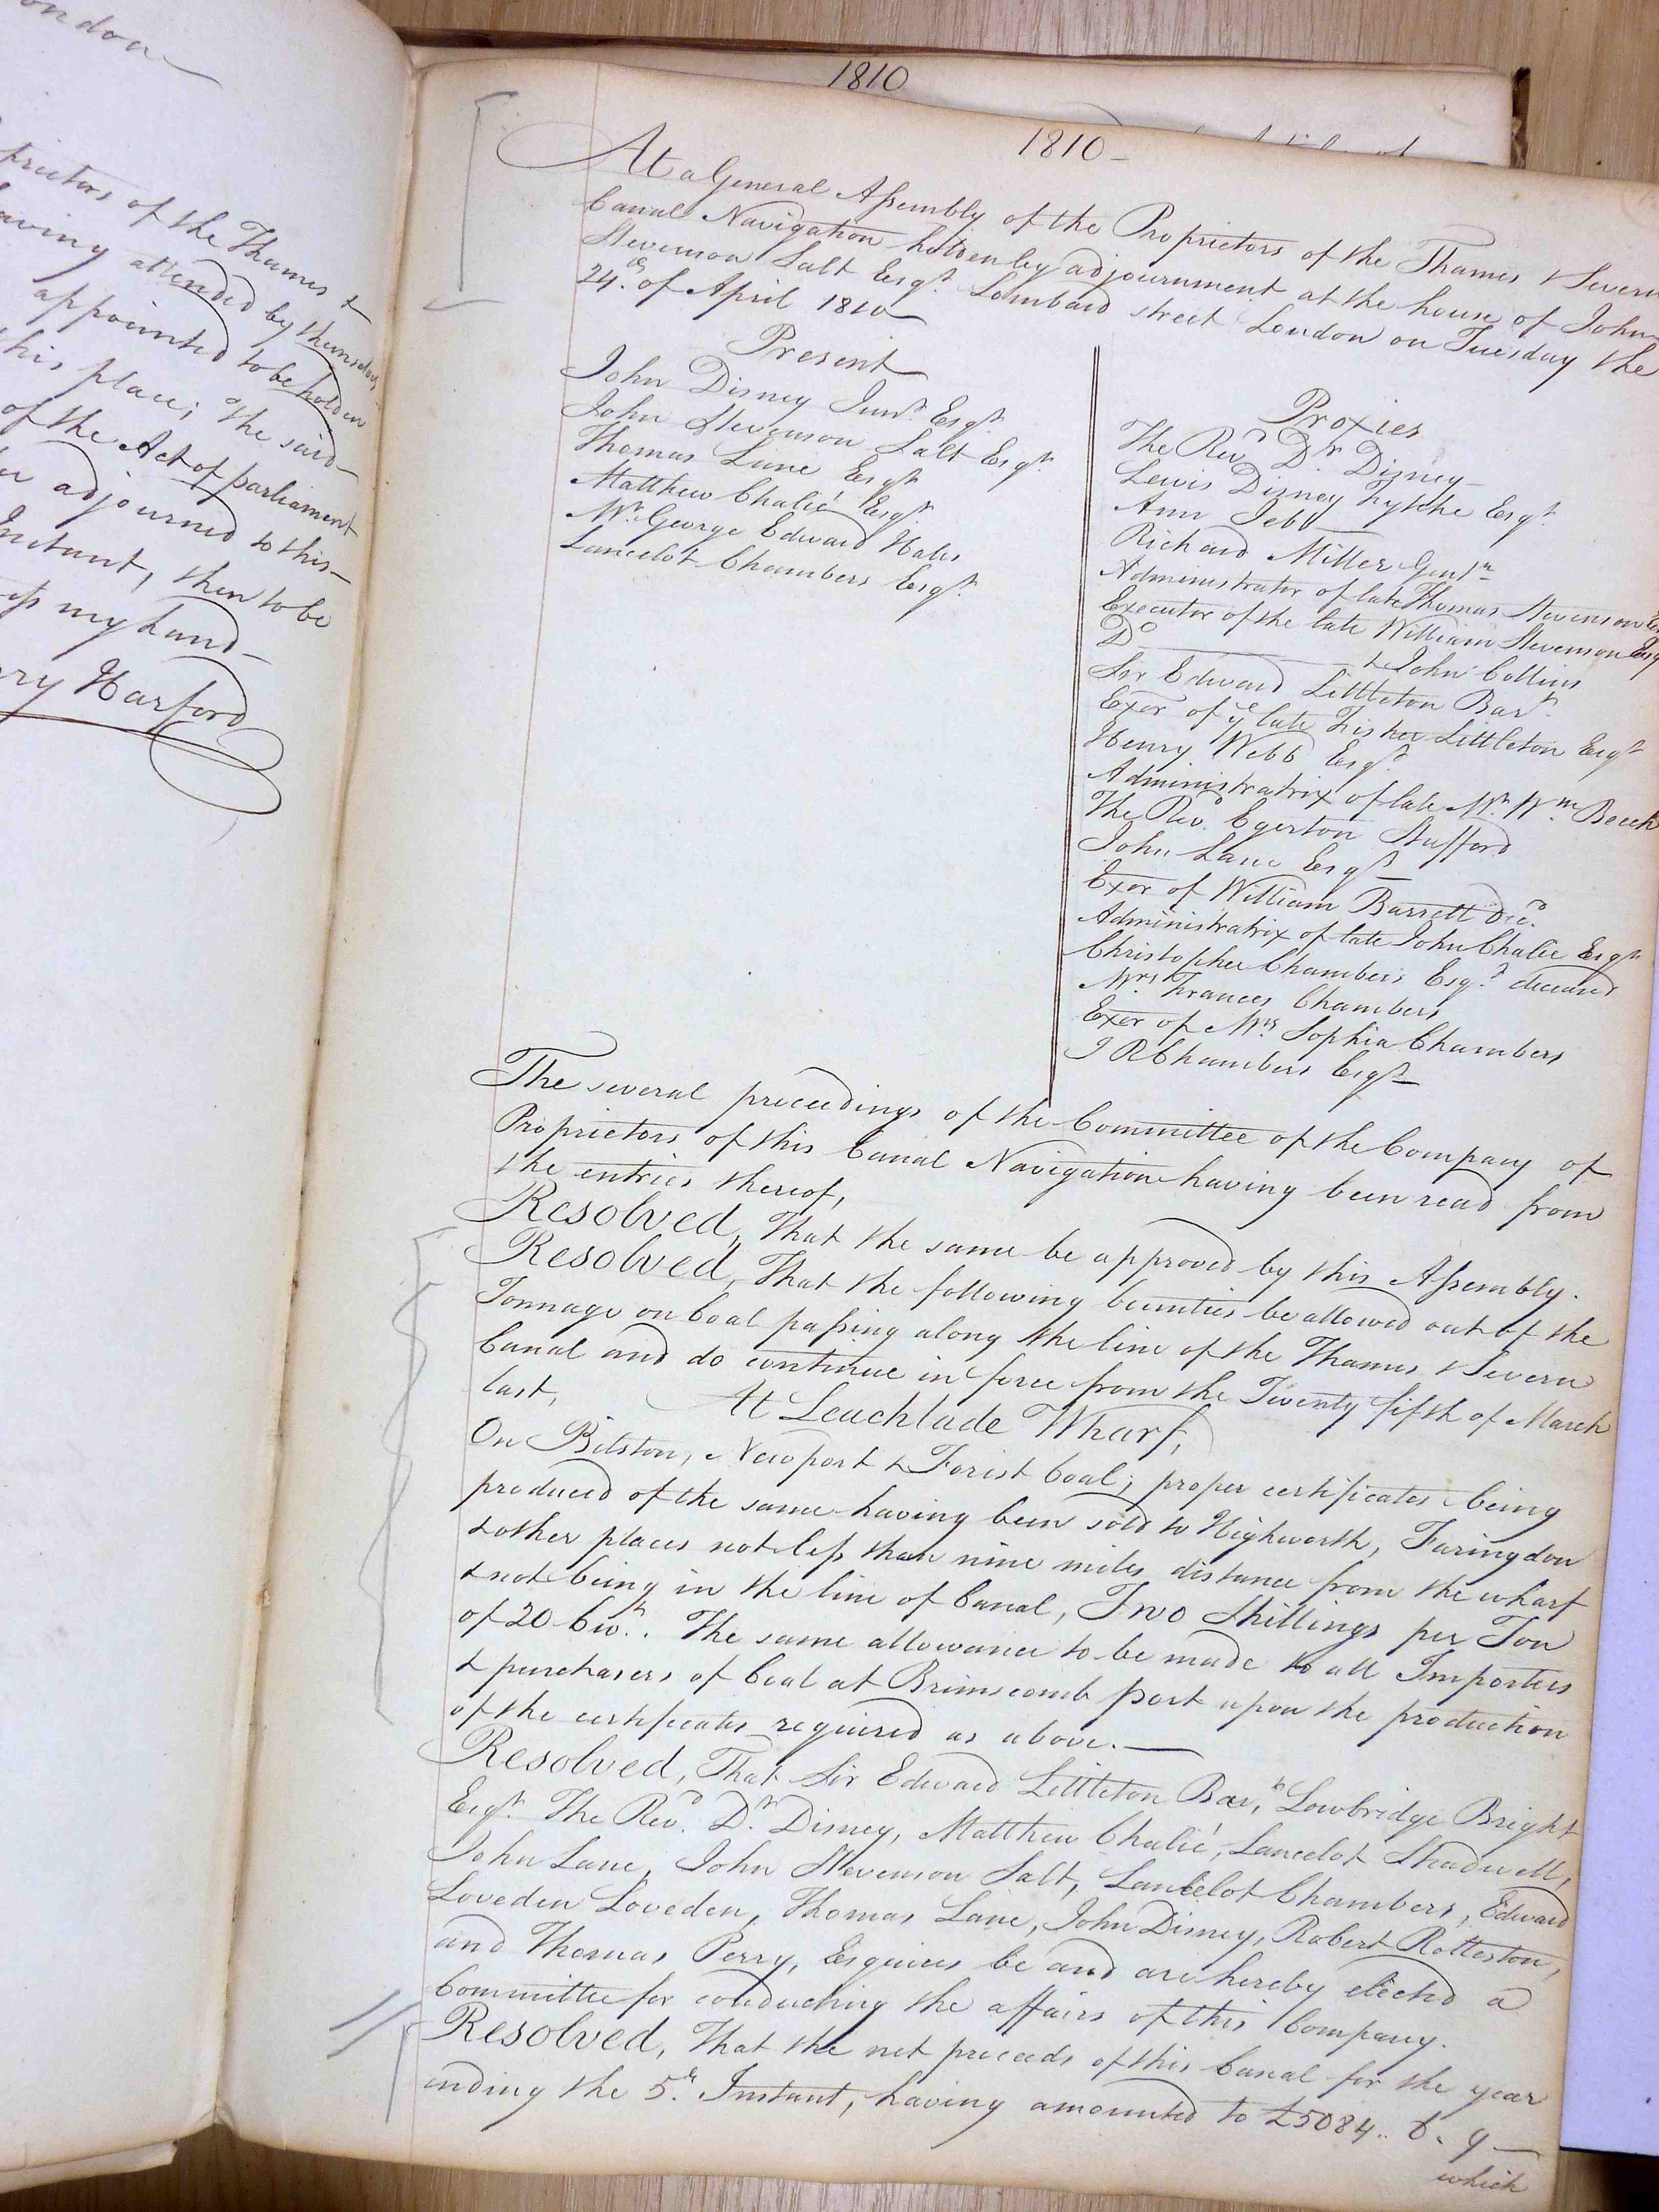 ondon
prietors of the Thames &
aving attended by themselves
appointed to be holden
this place; the said
of the Act of parliament
adjourned to this
Instant, then to be
my hand
ry Harford
1810
1810
At a General Assembly of the Proprietors of the Thames & Severn
Canal Navigation holden by adjournment at the house of John
Stevenson Salt Esqr. Lombard street London on Tuesday the
24th. of April 1810
Present
John Disney Junr. Esqr.
John Stevenson Salt Esqr.
Thomas Lane Esqr.
Matthew Chalié Esqr.
Mr. George Edward Hales
Lancelot Chambers Esqr.
Proxies
The Revd. Dr. Disney
Lewis Disney Fytche Esqr.
Ann Jebb
Richard Miller Gentn.
Administrator of late Thomas Stevenson Es
Executor of the late William Stevenson Esq
Do. & John Collins
Sir Edward Littleton Bart.
Exor of ye. late Fisher Littleton Esqr.
Henry Webb Esqr.
Administratrix of late Mr. Wm. Beech
The Revd. Egerton Stafford
John Lane Esqr.
Exor of William Barrett Decd.
Administratrix of late John Chalié Esqr.
Christopher Chambers Esqr. deceased
Mrs. Frances Chambers
Exor of Mrs. Sophia Chambers
J R Chambers Esqr.
The several proceedings of the Committee of the Company of
Proprietors of this Canal Navigation having been read from
the entries thereof,
Resolved, That the same be approved by this Assembly.
Resolved, That the following bounties be allowed out of the
Tonnage on Coal passing along the line of the Thames & Severn
Canal and do continue in force from the Twenty fifth of March
last,
At Leachlade Wharf,
On Bilston, Newport & Forest Coal; proper certificates being
produced of the same having been sold to Highworth, Faringdon
& other places not less than nine miles distance from the wharf
& not being in the line of Canal, Two Shillings per Ton
of 20 Cwt. The same allowance to be made to all Importers
& purchasers of Coal at Brimscomb port upon the production
of the certificates required as above.
Resolved, That Sir Edward Littleton Bart, Lowbridge Bright
Esqr. The Revd. Dr. Disney, Matthew Chalié, Lancelot Shadwell,
John Lane, John Stevenson Salt, Lancelot Chambers, Edward
Loveden Loveden, Thomas Lane, John Disney, Robert Rolleston,
and Thomas Perry, Esquires be and are hereby elected a
Committee for conducting the affairs of this Company.
Resolved, That the net proceeds of this Canal for the year
ending the 5th. Instant, having amounted to £5084.. 6. 9
which